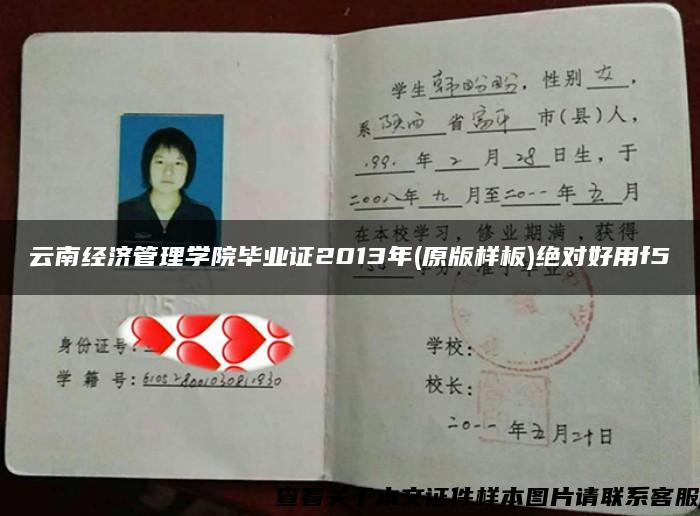 学生韩盼盼，性别女，
系陕西省富平市(县)人，
199.年2月28日生，于
二00八年九月至二0一一年五月
在本校学习，修业期满，获得
云南经济管理学院毕业证2013年(原版样板)绝对好用f5
学分，准予毕业。
身份证号：
学籍号：
学校：
校长：
二0一一年五月二十日
查看关于本文证件样本图片请联系客服